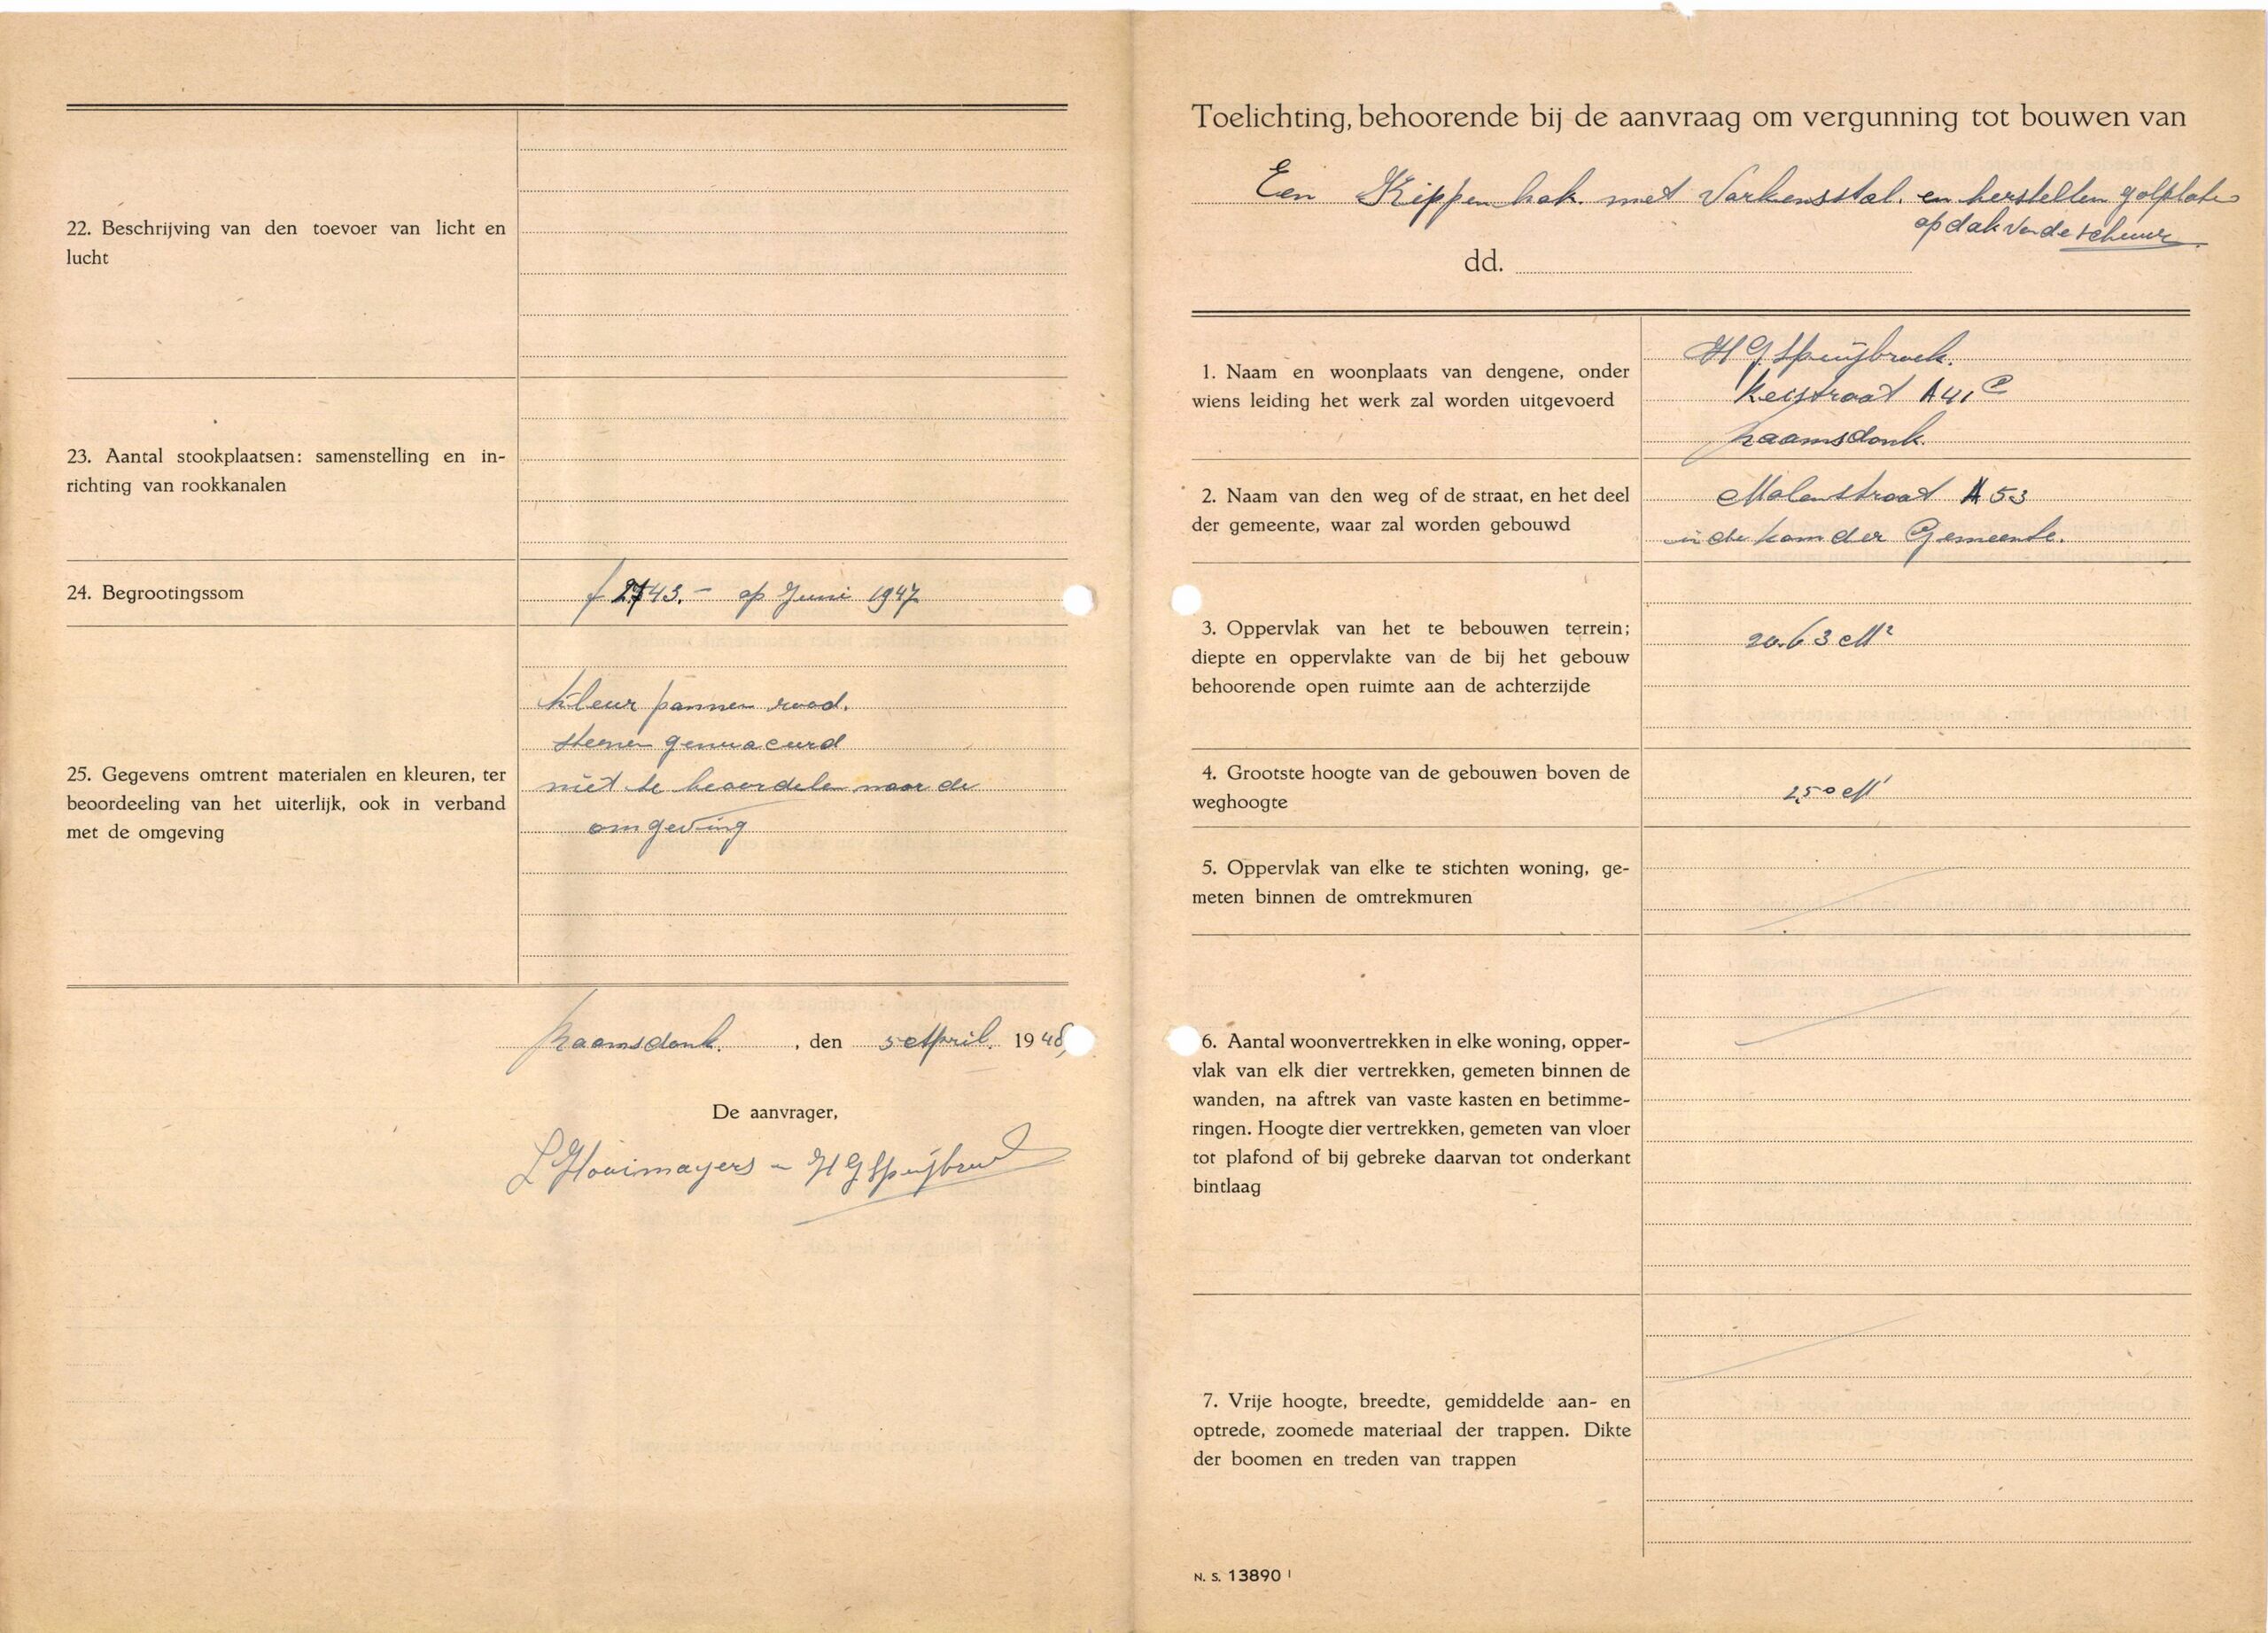 22. Beschrijving van den toevoer van licht en
lucht
23. Aantal stookplaatsen: samenstelling en in-
richting van rookkanalen
24. Begrootingssom
f 2743.- op Juni 1947
25. Gegevens omtrent materialen en kleuren, ter
beoordeeling van het uiterlijk, ook in verband
met de omgeving
kleur pannen rood.
steenen genuaceurd
niet te beoordelen naar de
omgeving
Raamsdonk. , den 5 April. 1948
De aanvrager,
L Hooimayers - H G Spuijbroek
Toelichting, behoorende bij de aanvraag om vergunning tot bouwen van
Een Kippenhok. met Varkensstal. en herstellen golplaten
op dak van de scheuur
dd.
1. Naam en woonplaats van dengene, onder
wiens leiding het werk zal worden uitgevoerd
H G Spuijbroek.
Keistraat A41 C
Raamsdonk.
2. Naam van den weg of de straat, en het deel
der gemeente, waar zal worden gebouwd
Molenstraat A 53
in de kom der Gemeente.
3. Oppervlak van het te bebouwen terrein;
diepte en oppervlakte van de bij het gebouw
behoorende open ruimte aan de achterzijde
20.63 M²
4. Grootste hoogte van de gebouwen boven de
weghoogte
2,50 M'
5. Oppervlak van elke te stichten woning, ge-
meten binnen de omtrekmuren
6. Aantal woonvertrekken in elke woning, opper-
vlak van elk dier vertrekken, gemeten binnen de
wanden, na aftrek van vaste kasten en betimme-
ringen. Hoogte dier vertrekken, gemeten van vloer
tot plafond of bij gebreke daarvan tot onderkant
bintlaag
7. Vrije hoogte, breedte, gemiddelde aan- en
optrede, zoomede materiaal der trappen. Dikte
der boomen en treden van trappen
N. S. 13890 I